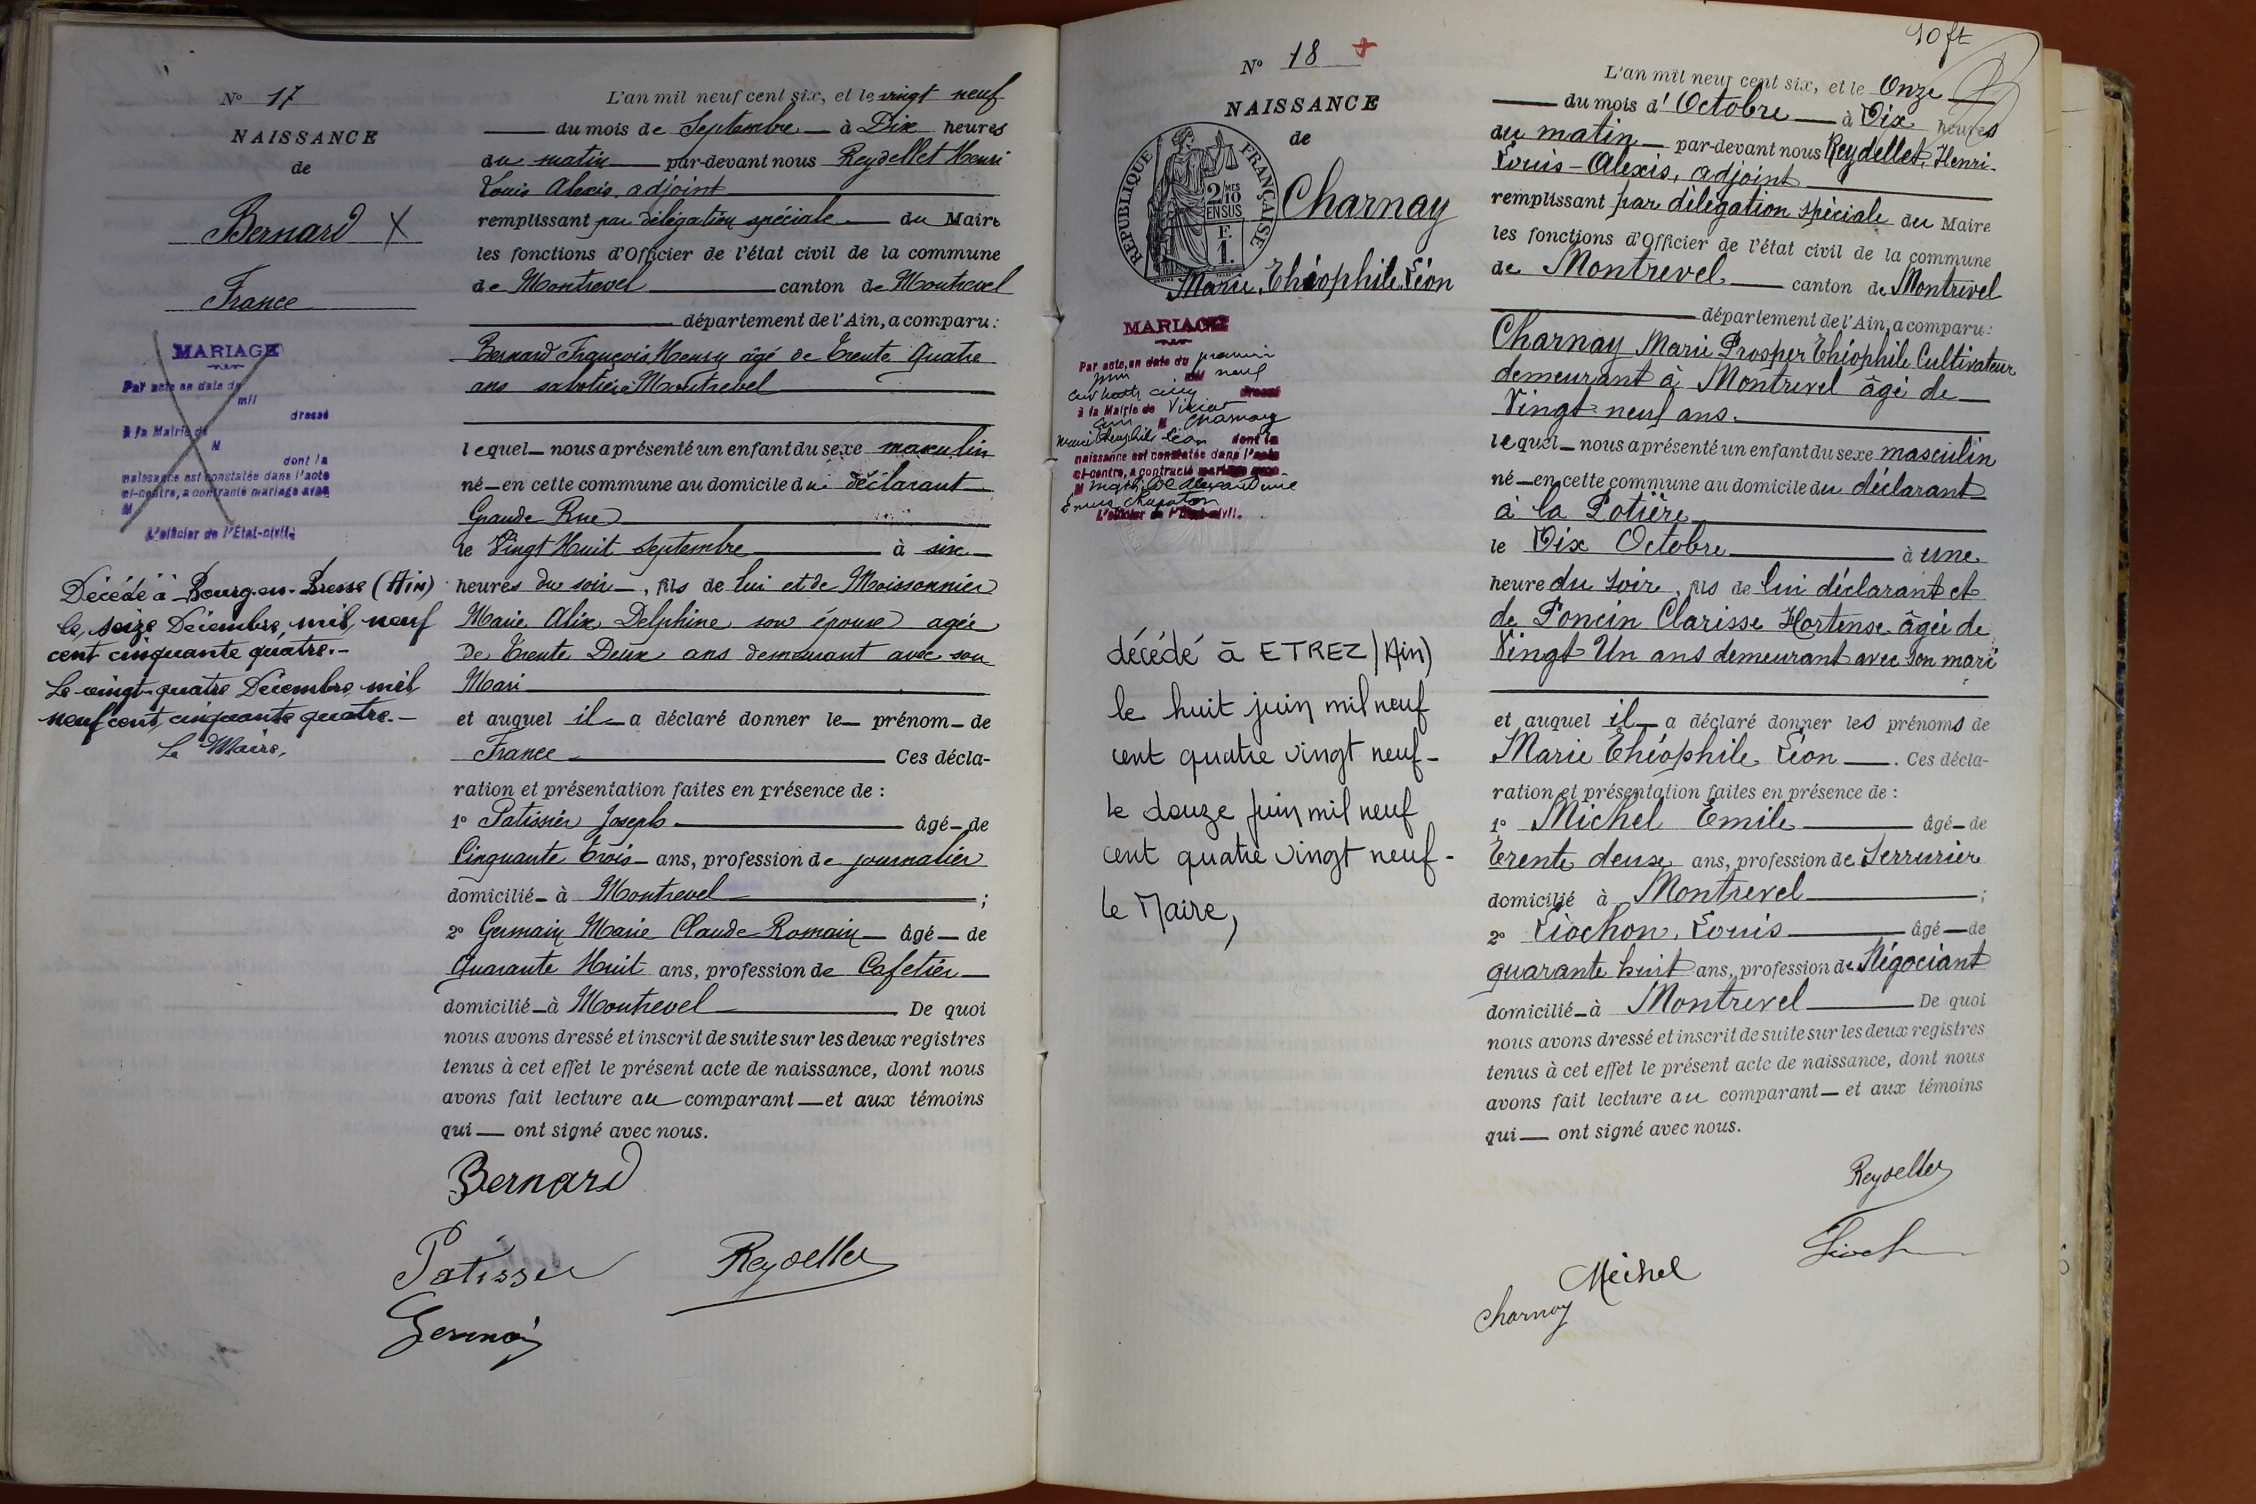 N° 17
NAISSANCE
de
Bernard X
France
MARIAGE
Par acte en date du
mil
dressé
à la Mairie de
M
dont la
naissance est constatée dans l'acte
ci-contre, a contracté mariage avec
M
L'officier de l'État-civil:
Décédé à Bourg-en-Bresse (Ain)
le seize Décembre mil neuf
cent cinquante quatre.-
Le vingt-quatre Décembre mil
neuf cent cinquante quatre.-
Le Maire,
L'an mil neuf cent six, et le vingt neuf
du mois de Septembre à Dix heures
du matin par-devant nous Reydellet Henri
Louis Alexis, adjoint
remplissant par délégation spéciale du Maire
les fonctions d'Officier de l'état civil de la commune
de Montrevel canton de Montrevel
département de l'Ain, a comparu:
Bernard François Henry âgé de Trente Quatre
ans sabotier à Montrevel
lequel nous a présenté un enfant du sexe masculin
né en cette commune au domicile du déclarant
Grande Rue
le Vingt Huit Septembre à six
heures du soir, fils de lui et de Moissonnier
Marie Alix Delphine son épouse agée
De Trente Deux ans demeurant avec son
Mari
et auquel il a déclaré donner le prénom de
France Ces décla-
ration et présentation faites en présence de :
1° Patissier Joseph âgé de
Cinquante trois ans, profession de journalier
domicilié à Montrevel ;
2° Germain Marie Claude Romain âgé de
Quarante Huit ans, profession de Cafetier
domicilié à Montrevel De quoi
nous avons dressé et inscrit de suite sur les deux registres
tenus à cet effet le présent acte de naissance, dont nous
avons fait lecture au comparant et aux témoins
qui ont signé avec nous.
Bernard
Patissier Reydellet
Germain
N° 18 +
NAISSANCE
de
RÉPUBLIQUE FRANÇAISE
2 MES
10
EN SUS
F.
1.
Charnay
Marie Théophile Léon
MARIAGE
Par acte en date du premier
juin mil neuf
cent trente cinq dressé
à la Mairie de Viriat
M Charnay
Marie Théophile Léon dont la
naissance est constatée dans l'acte
ci-contre, a contracté mariage avec
M
L'officier de l'État-civil.
décédé à ETREZ (Ain)
le huit juin mil neuf
cent quatre vingt neuf-
le douze juin mil neuf
cent quatre vingt neuf-
le Maire,
10 ft
L'an mil neuf cent six, et le Onze
du mois d'Octobre à Dix heures
du matin par-devant nous Reydellet, Henri-
Louis-Alexis, adjoint
remplissant par délégation spéciale du Maire
les fonctions d'Officier de l'état civil de la commune
de Montrevel canton de Montrevel
département de l'Ain, a comparu:
Charnay Marie Prosper Théophile Cultivateur
demeurant à Montrevel âgé de
Vingt neuf ans.
lequel nous a présenté un enfant du sexe masculin
né en cette commune au domicile du déclarant
à la Potière
le Dix Octobre à une
heure du soir, fils de lui déclarant et
de Poncin Clarisse Hortense âgée de
Vingt Un ans demeurant avec son mari
et auquel il a déclaré donner les prénoms de
Marie Théophile Léon . Ces décla-
ration et présentation faites en présence de :
1° Michel Émile âgé de
Trente deux ans, profession de Serrurier
domicilié à Montrevel ;
2° Liochon, Louis âgé de
quarante huit ans, profession de Négociant
domicilié à Montrevel De quoi
nous avons dressé et inscrit de suite sur les deux registres
tenus à cet effet le présent acte de naissance, dont nous
avons fait lecture au comparant et aux témoins
qui ont signé avec nous.
Reydellet
Lioch
Michel
Charnay